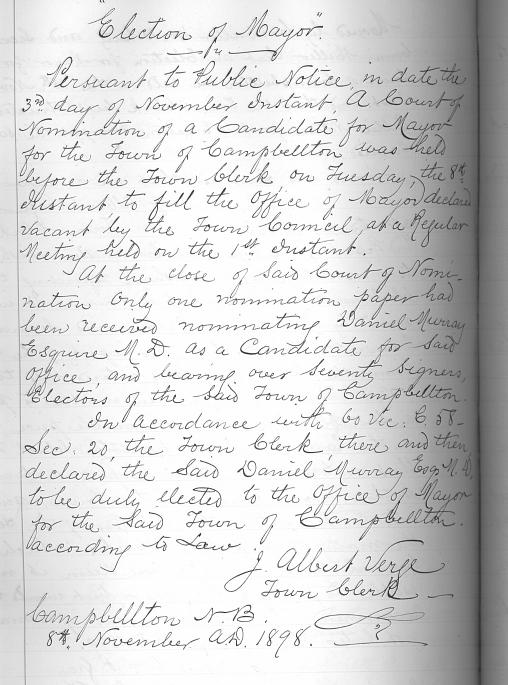 "Election of Mayor"
Persuant to Public Notice, in date the
3rd day of November Instant, A Court of
Nomination of a Candidate for Mayor
for the Town of Campbellton was held
before the Town Clerk on Tuesday, the 8th
Instant, to fill the Office of Mayor declared
vacant by the Town Council, at a Regular
Meeting held on the 1st Instant.
At the close of Said Court of Nomi-
nation Only one nomination paper had
been received nominating Daniel Murray
Esquire M.D. as a Candidate for Said
Office, and bearing over seventy signers,
Electors of the said Town of Campbellton.
In accordance with 60 Vic. C. 58-
Sec. 20, the Town Clerk, there and then
declared the Said Daniel Murray Esqr M.D.
to be duly elected to the Office of Mayor
for the Said Town of Campbellton.
according to Law
J. Albert Verge
Town Clerk
Campbellton N.B.
8th. November A.D. 1898.